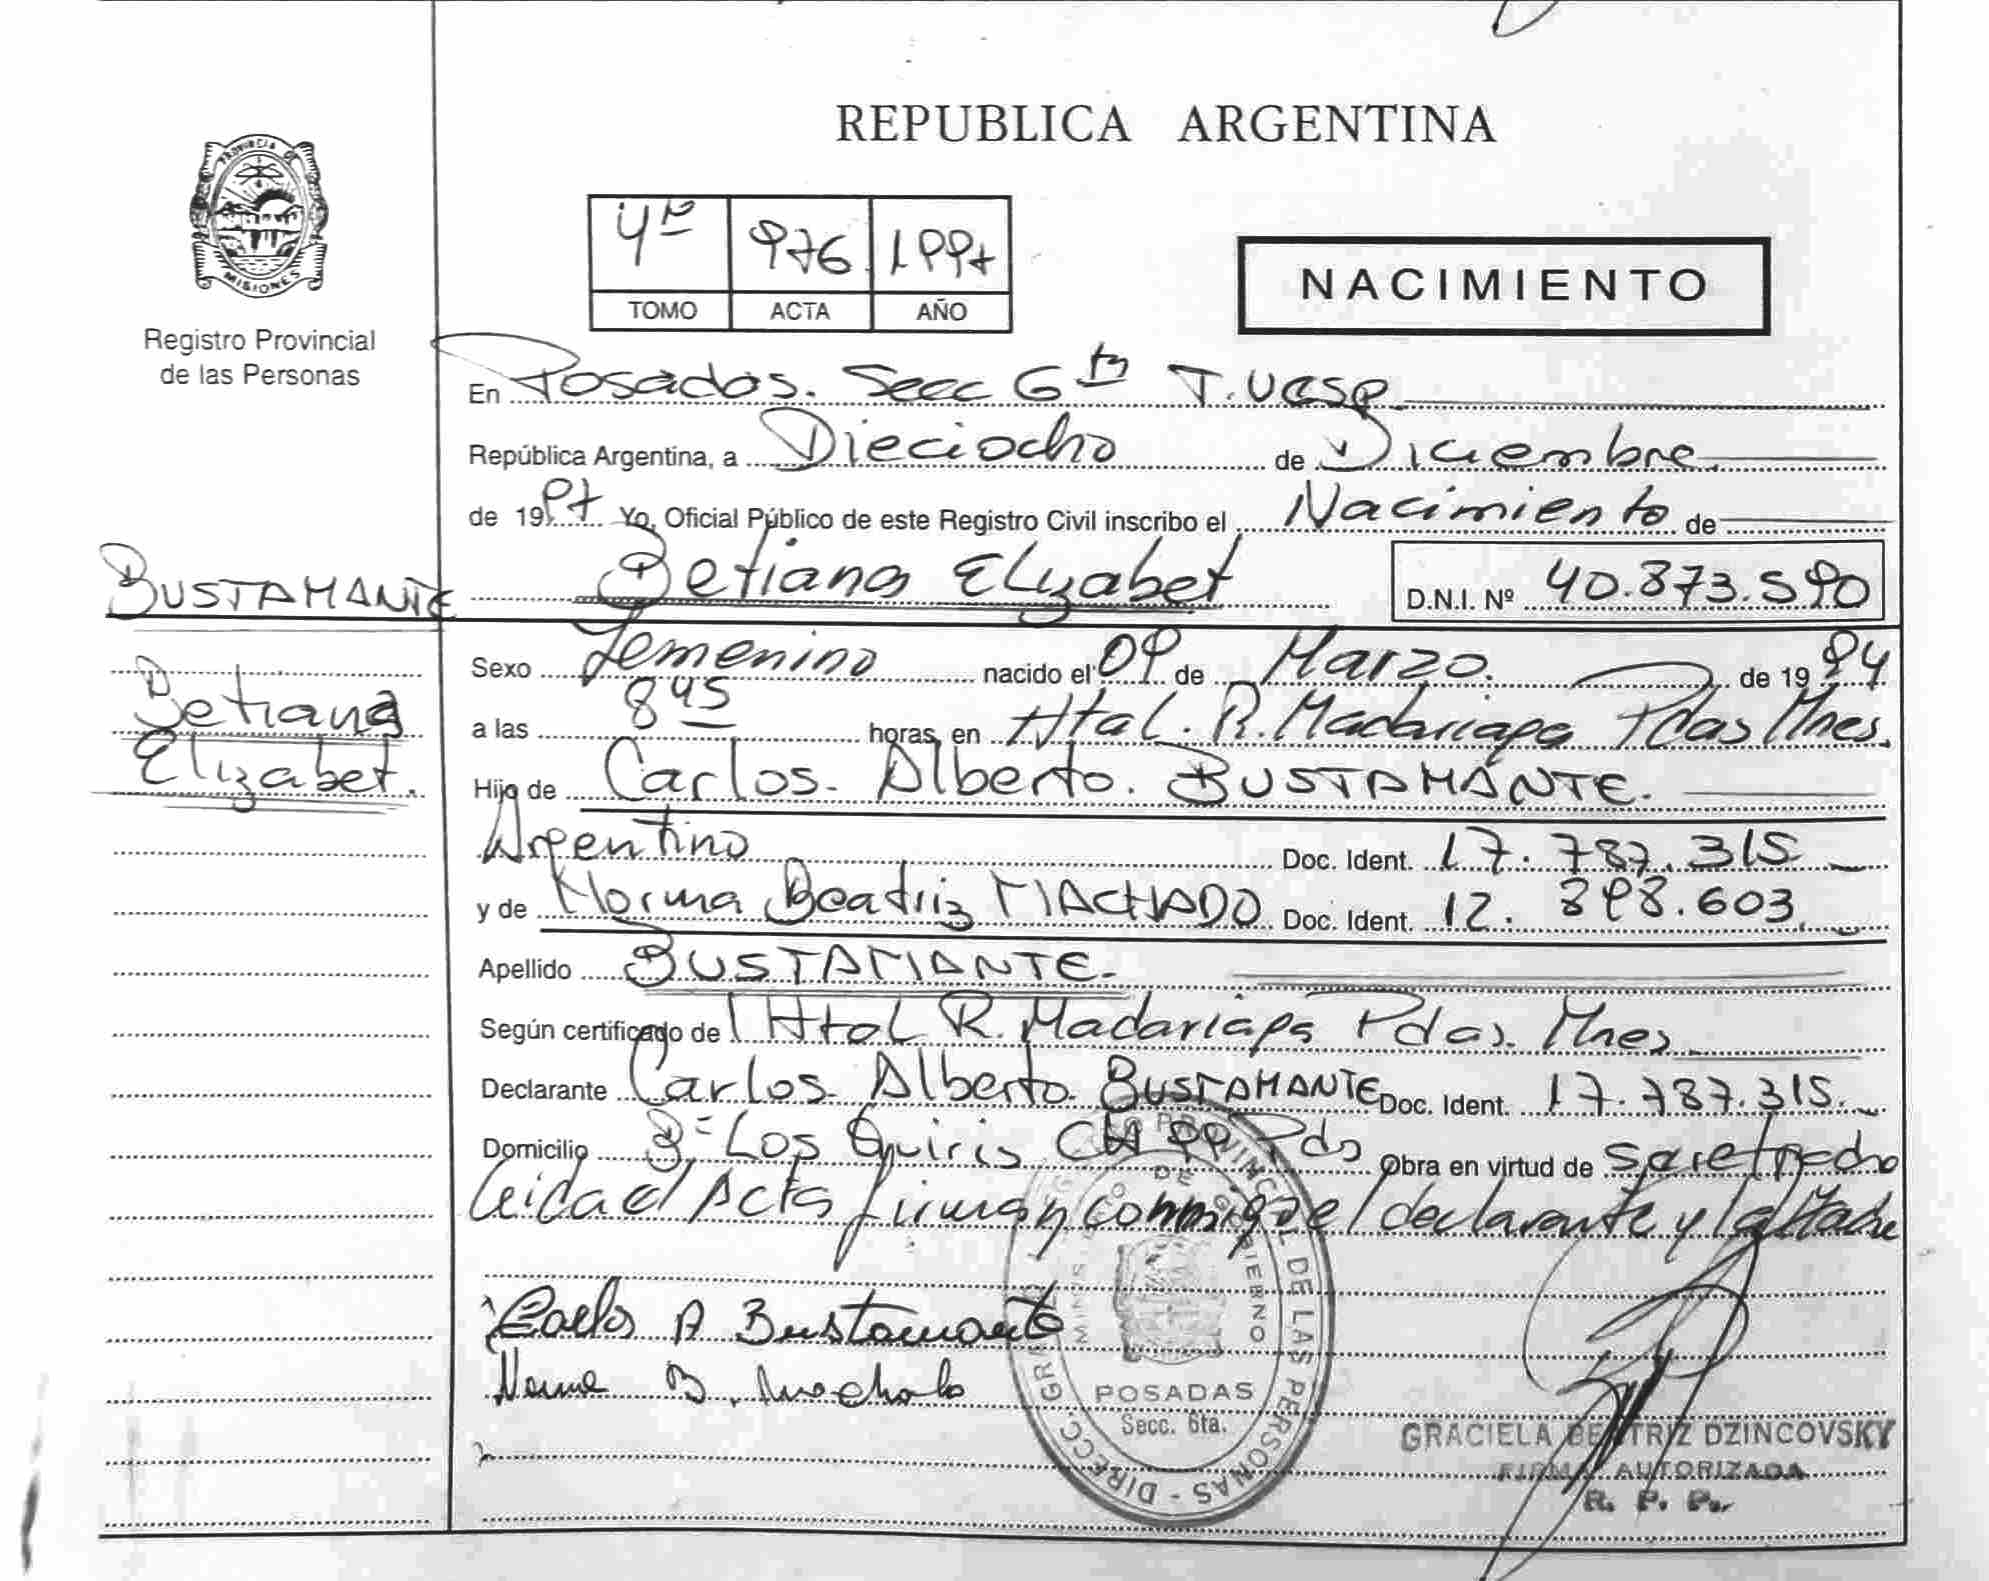 REPUBLICA ARGENTINA
PROVINCIA DE
MISIONES
Registro Provincial
de las Personas
4º 976 1997
TOMO ACTA AÑO
NACIMIENTO
En Posadas. Secc 6ta T. Vesp
República Argentina, a Dieciocho de Diciembre.
de 1997 Yo, Oficial Público de este Registro Civil inscribo el Nacimiento de
BUSTAMANTE Betiana Elizabet D.N.I. Nº 40.873.590
Betiana
Elizabet.
Sexo Femenino nacido el 09 de Marzo. de 1994
a las 8 45 horas, en Htal. R. Madariaga Pdas Mnes.
Hijo de Carlos. Alberto. BUSTAMANTE.
Argentino Doc. Ident. 17.787.315
y de Norma Beatriz MACHADO Doc. Ident. 12.898.603.
Apellido BUSTAMANTE.
Según certificado de l Htal R. Madariaga Pdas. Mnes
Declarante Carlos Alberto BUSTAMANTE Doc. Ident. 17.787.315.
Domicilio Bº Los Quiris CH 99 Pds Obra en virtud de ser el padre
Leida el Acta firman conmigo el declarante y la Madre
Carlos A Bustamante
Norma B. Machado
DIRECC. GRAL. PROVINCIAL DE LAS PERSONAS
DE GOBIERNO
POSADAS
Secc. 6ta.
GRACIELA BEATRIZ DZINCOVSKY
FIRMA AUTORIZADA
R. P. P.